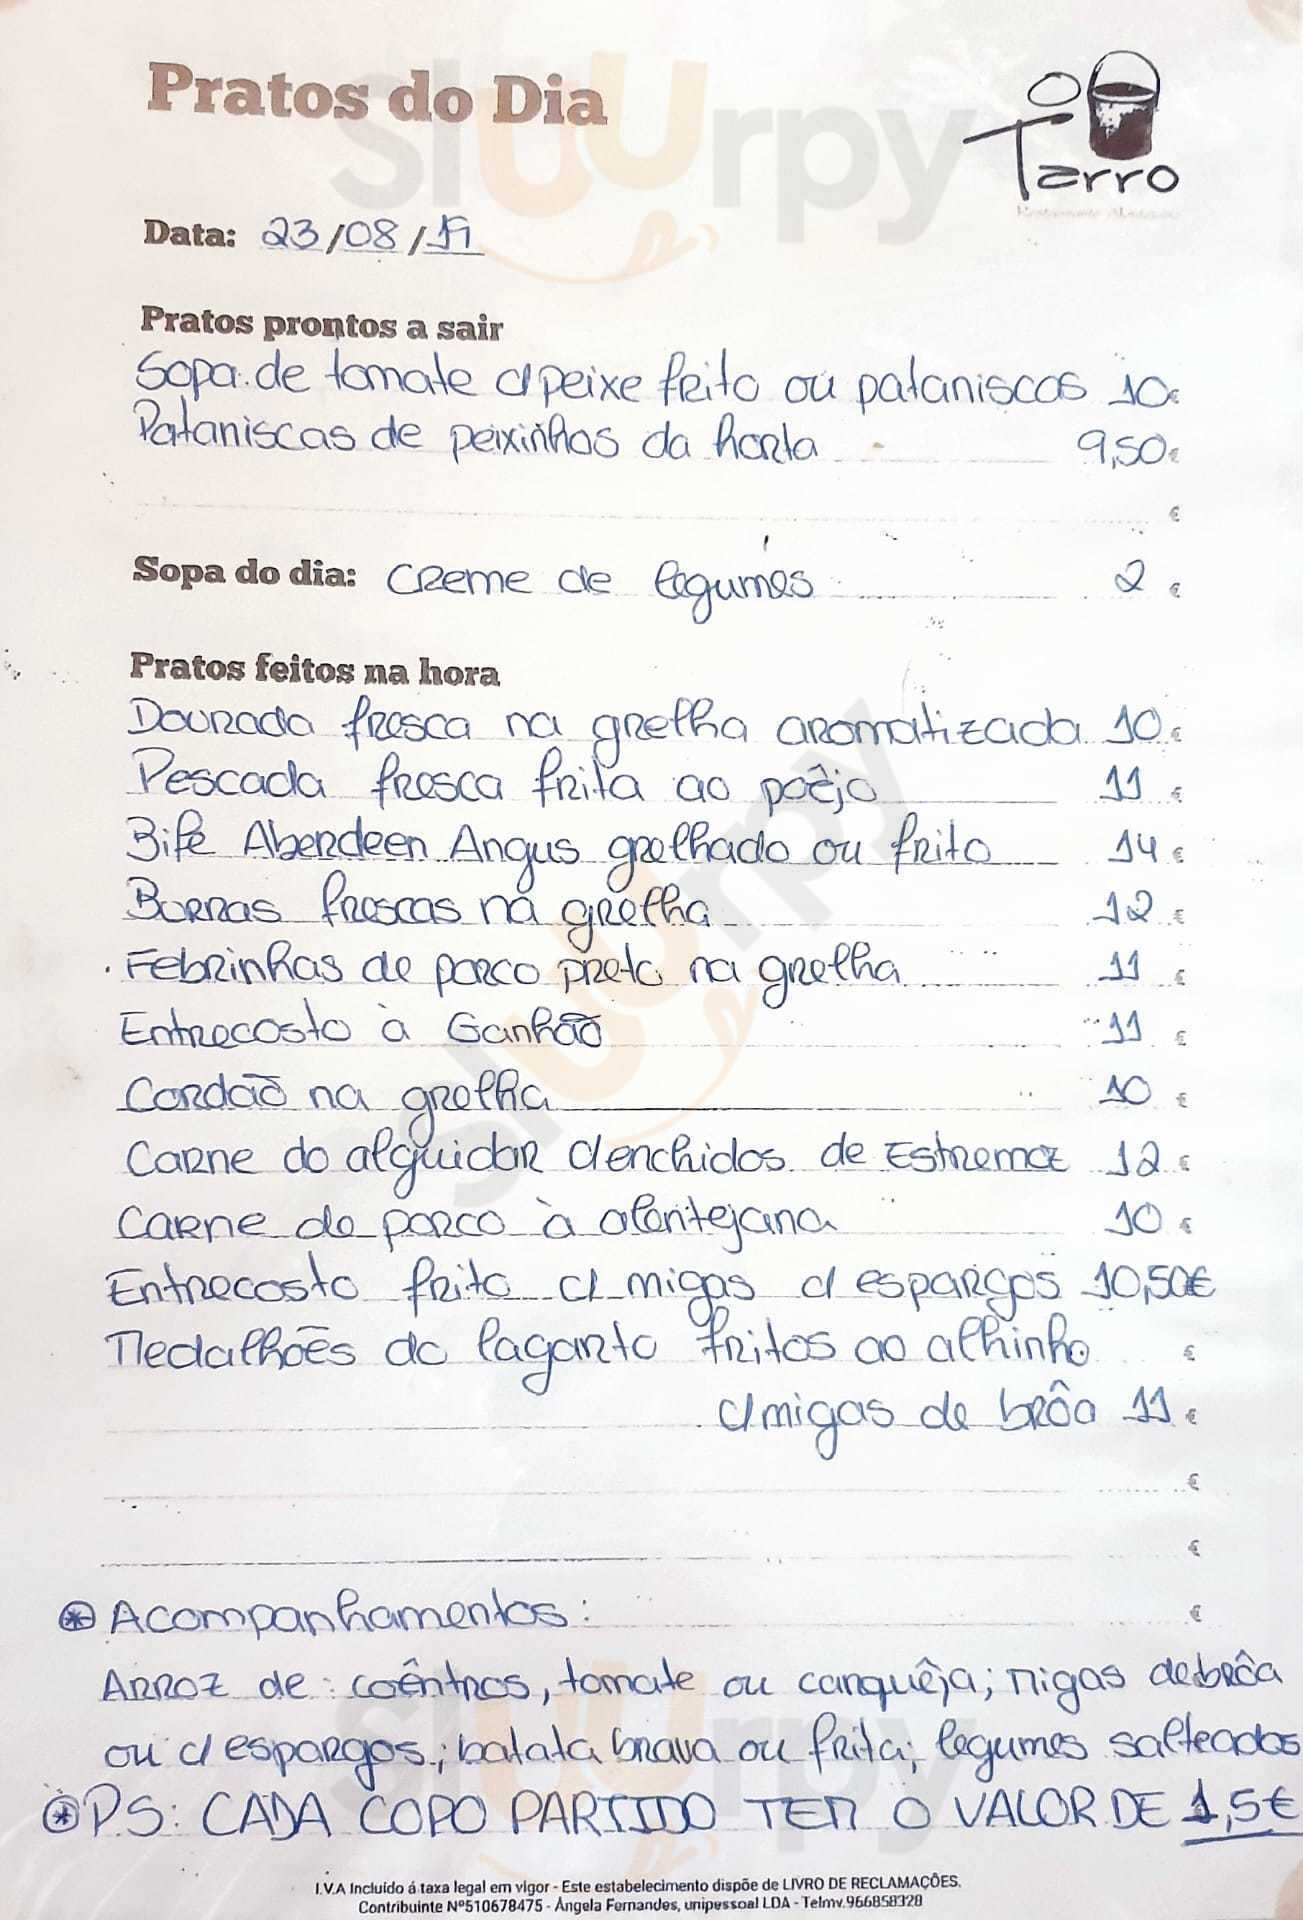 Pratos do Dia
O Tarro
Data: 23/08/19
Pratos prontos a sair
Sopa de tomate c/peixe frito ou pataniscas 10€
Pataniscas de peixinhos da horta 9,50€
€
Sopa do dia: Creme de legumes 2 €
Pratos feitos na hora
Dourada fresca na grelha aromatizada 10 €
Pescada fresca frita ao poêjo 11 €
Bife Aberdeen Angus grelhado ou frito 14 €
Burras frescas na grelha 12 €
Febrinhas de porco preto na grelha 11 €
Entrecosto à Ganhão 11 €
Cordão na grelha 10 €
Carne do alguidar c/enchidos de Estremoz 12 €
Carne de porco à alentejana 10 €
Entrecosto frito c/ migas c/ espargos 10,50€
Medalhões do lagarto fritos ao alhinho €
c/migas de brôa 11 €
€
€
Acompanhamentos: €
Arroz de: coêntros, tomate ou carquêja; migas de brôa
ou c/ espargos; batata brava ou frita; legumes salteados
P.S: CADA COPO PARTIDO TEM O VALOR DE 1,5€
I.V.A Incluído á taxa legal em vigor - Este estabelecimento dispõe de LIVRO DE RECLAMAÇÕES.
Contribuinte Nº510678475 - Ângela Fernandes, unipessoal LDA - Telmv.966858328
sluurpy
sluurpy
sluurpy